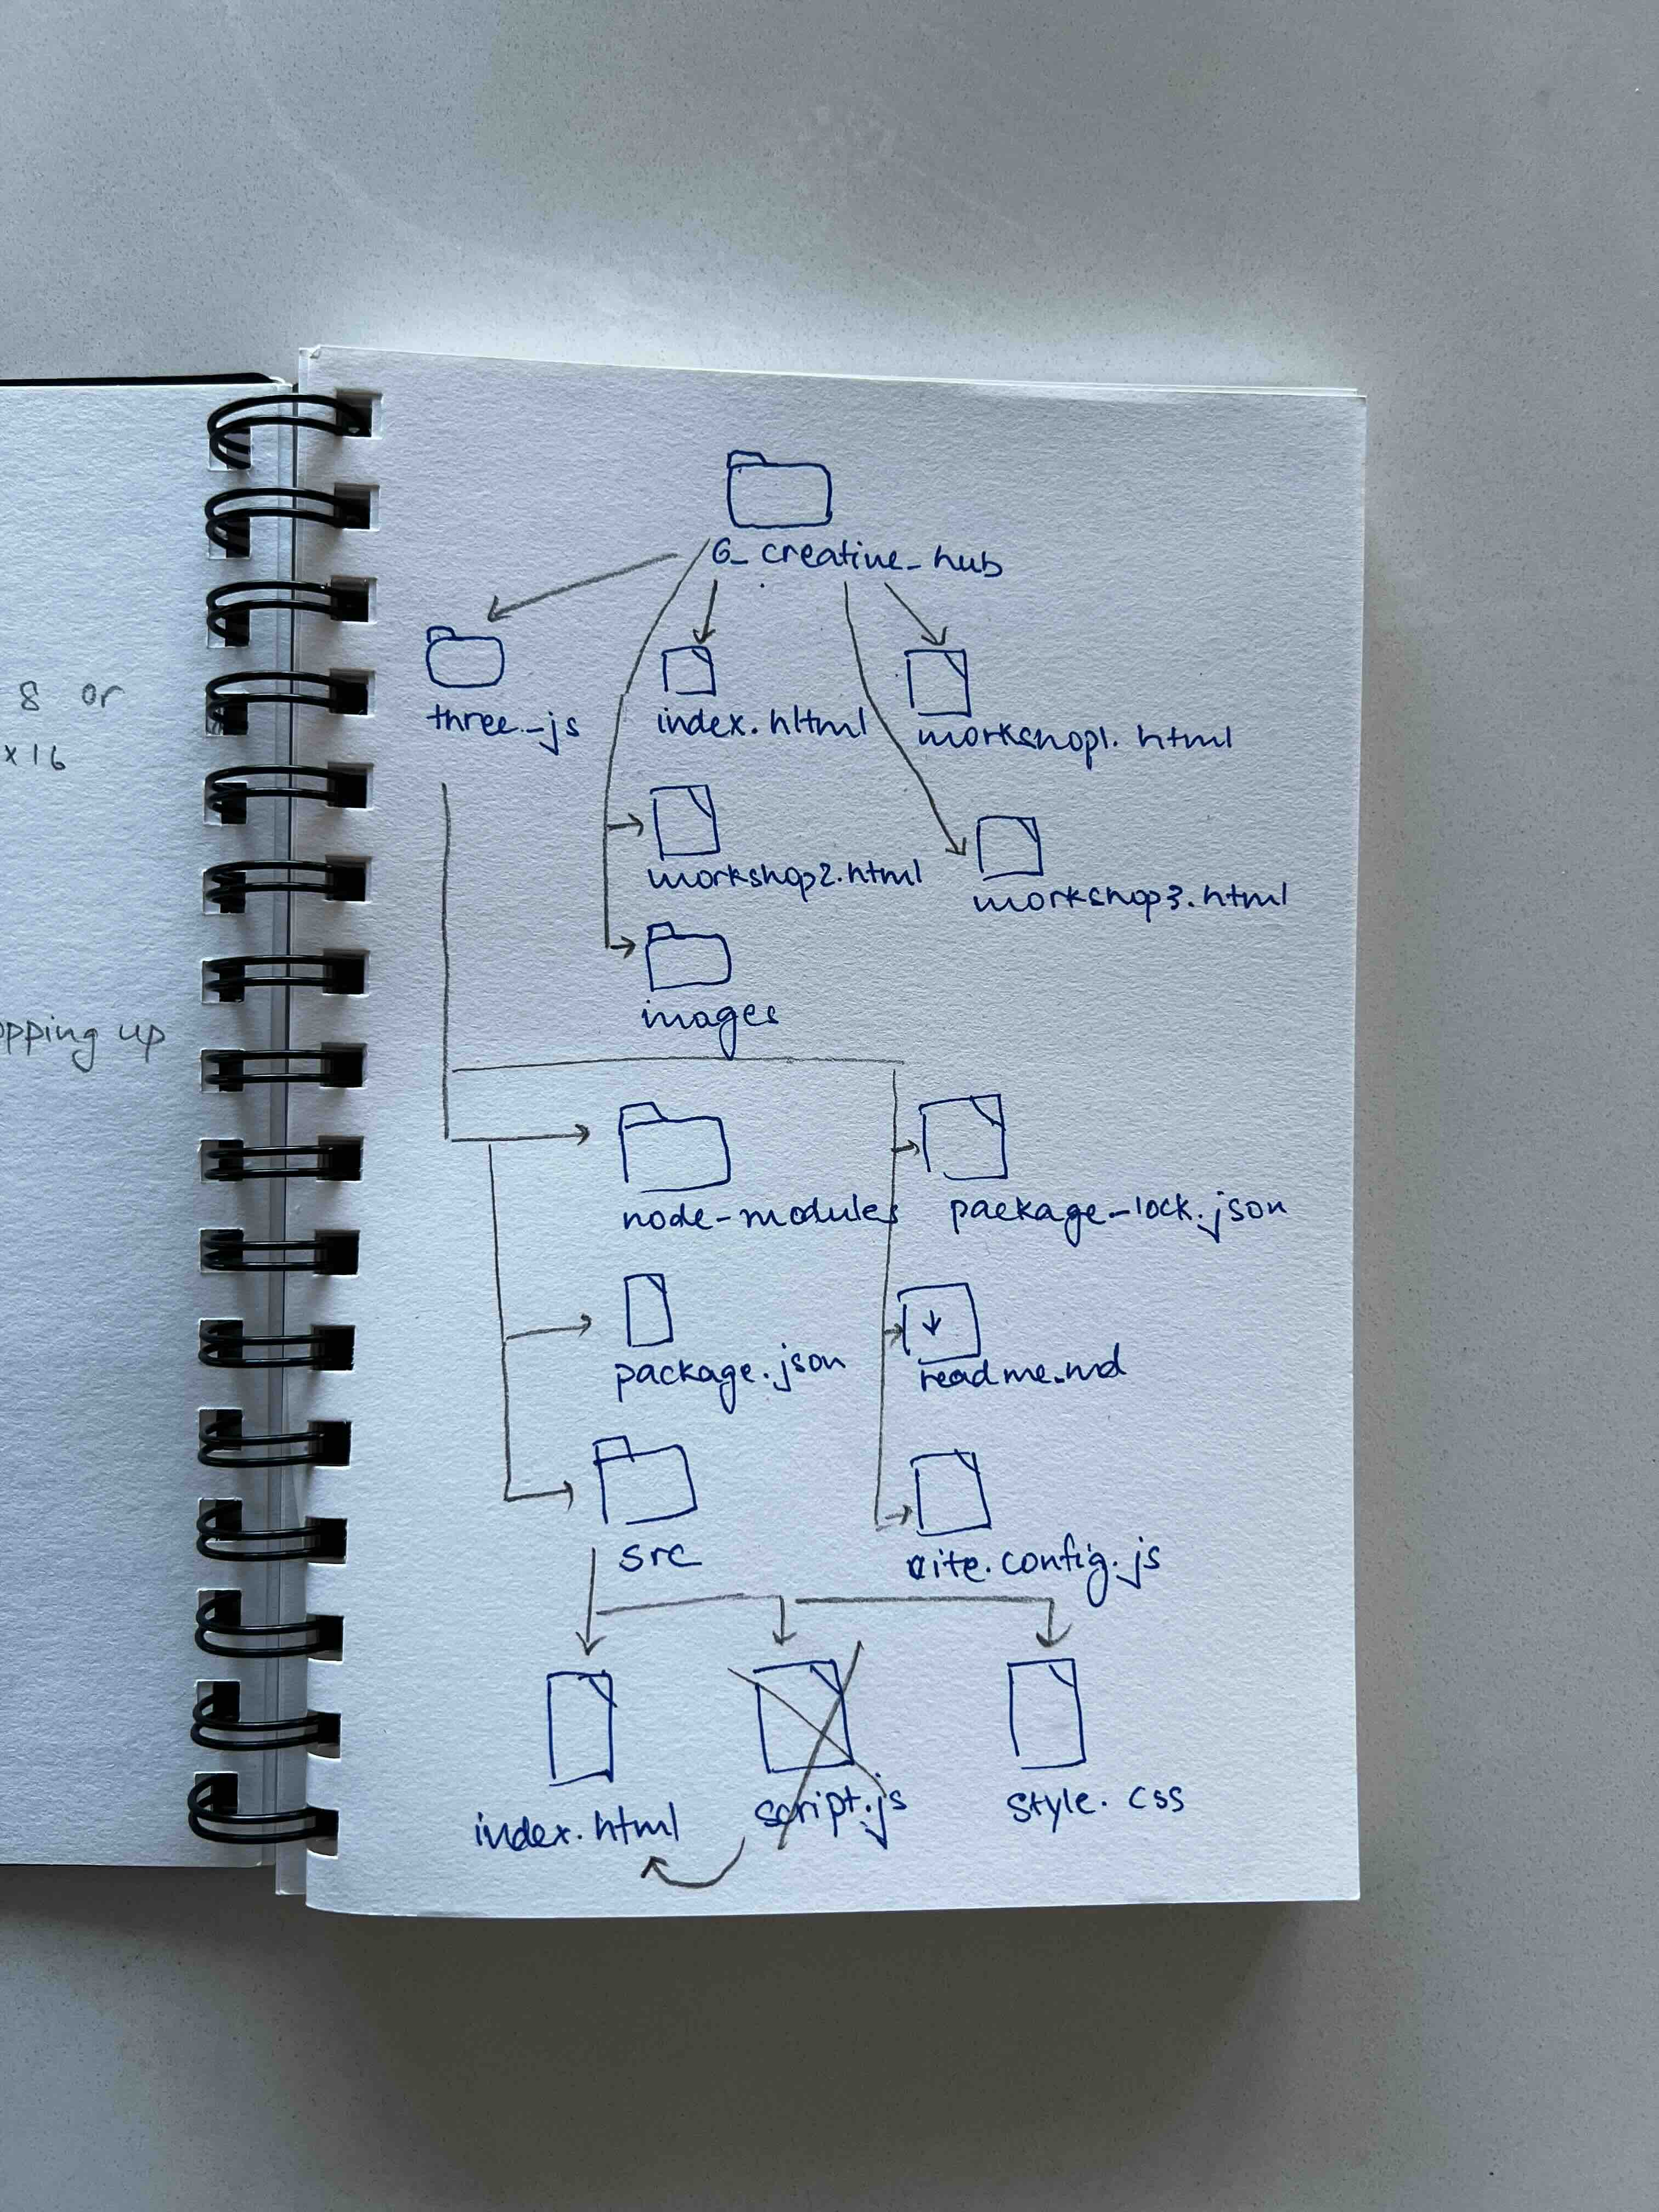 8 or
x16
opping up
G_creative_hub
three_js
index.hltml
workshop1.html
workshop2.html
workshop3.html
images
node-modules
package-lock.json
package.json
readme.md
src
vite.config.js
index.html
script.js
style.css